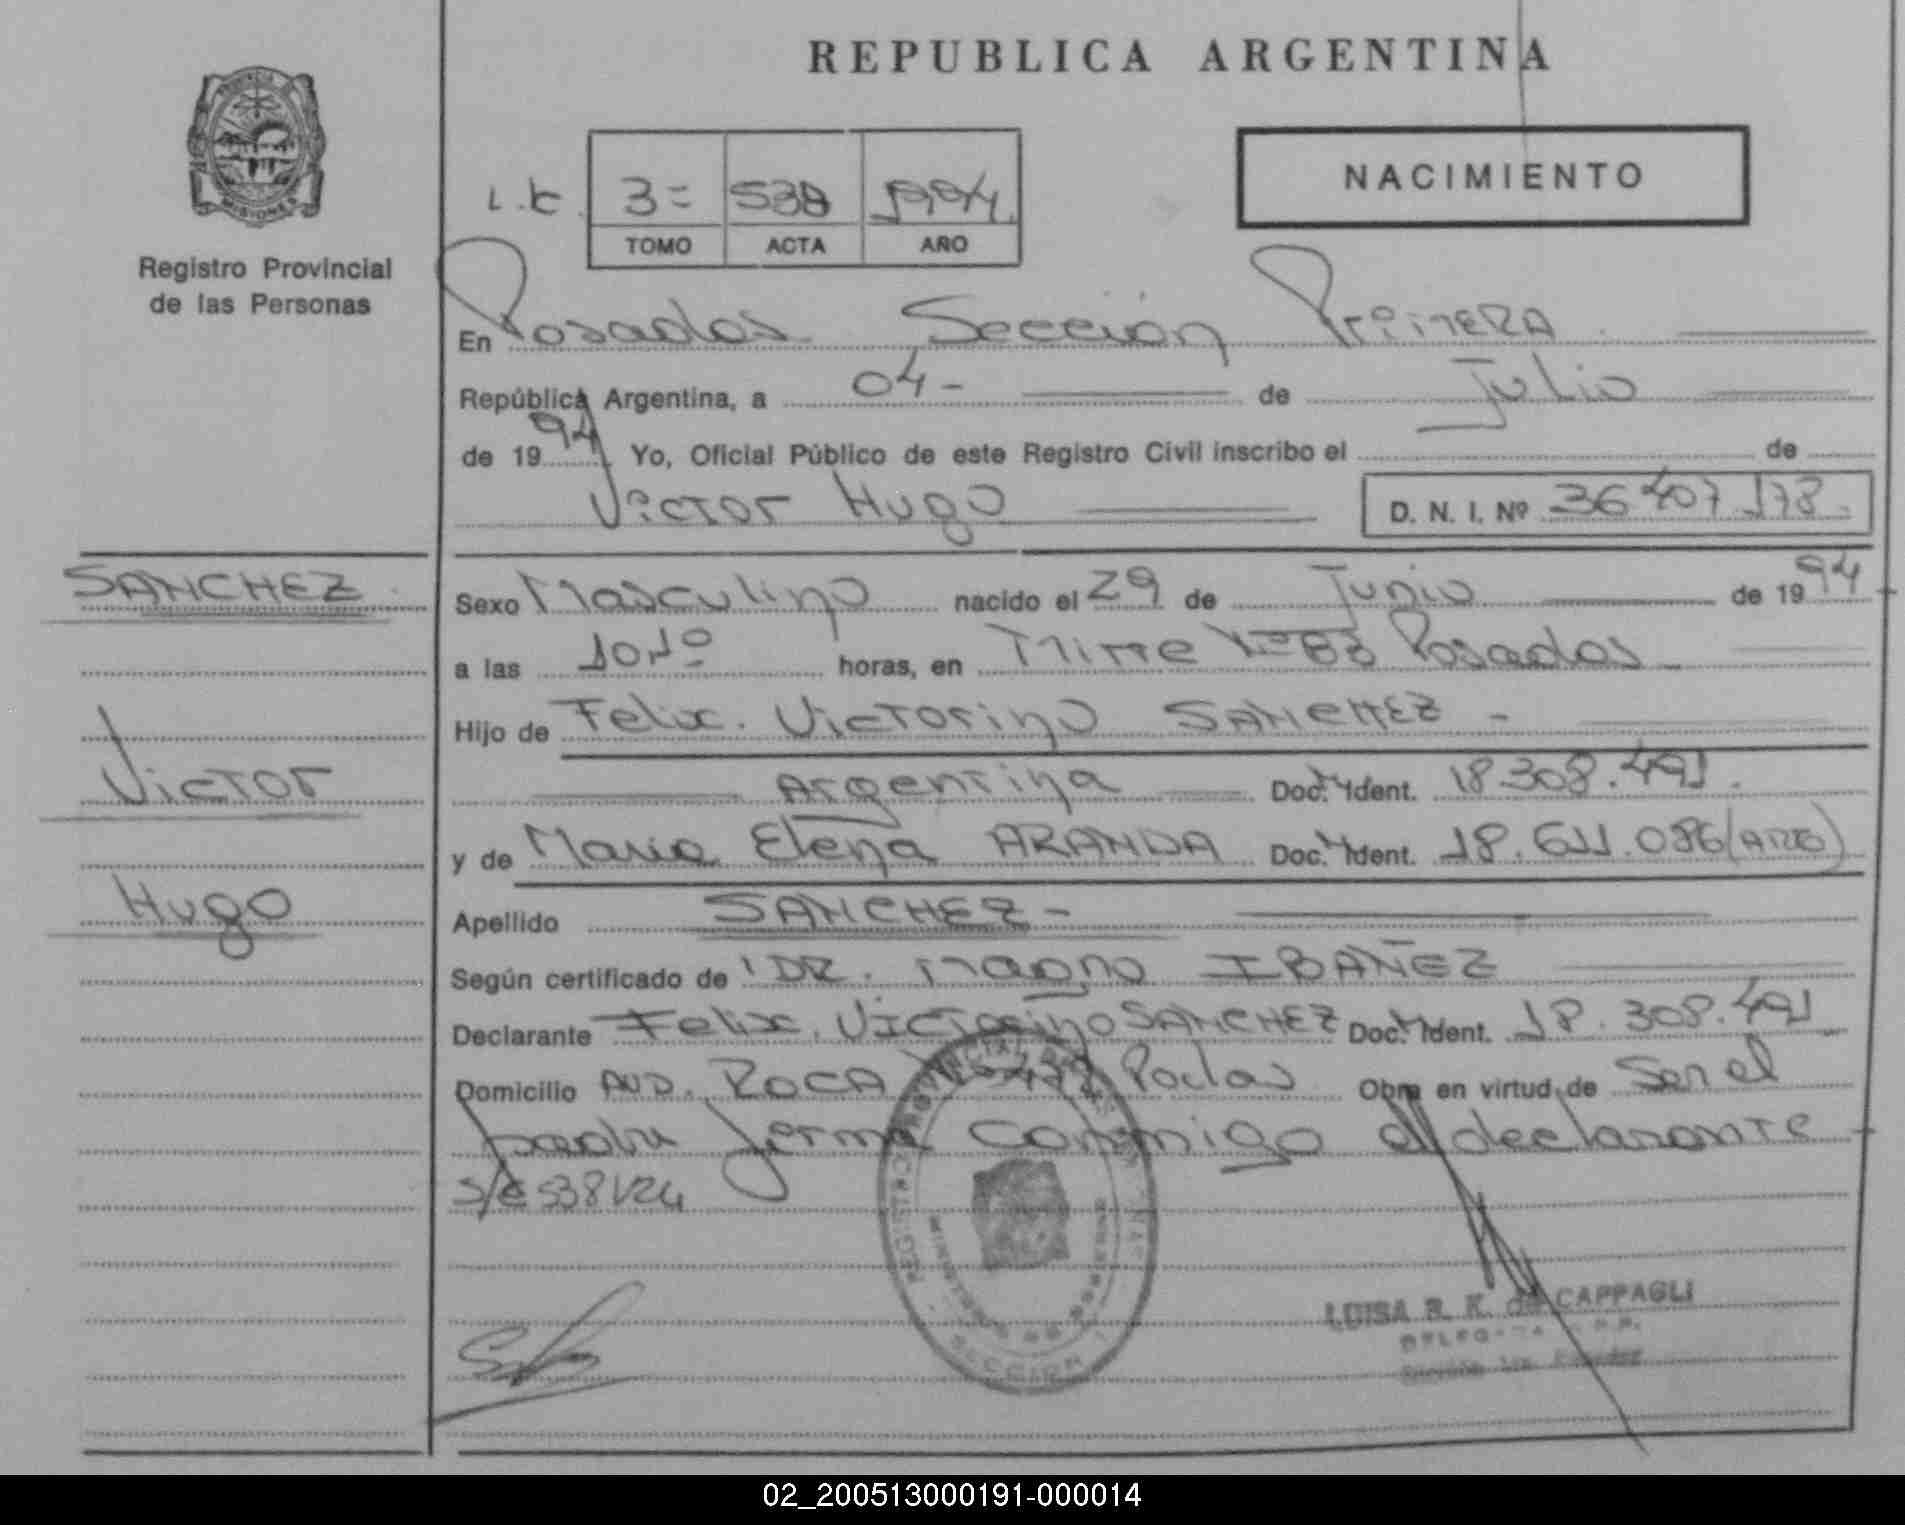 REPUBLICA ARGENTINA
PROVINCIA DE
MISIONES
Registro Provincial
de las Personas
NACIMIENTO
3= 538 1994
TOMO ACTA AÑO
En Posadas Sección Primera
República Argentina, a 04- de Julio
de 1994 Yo, Oficial Público de este Registro Civil inscribo el de
Victor Hugo D. N. I. Nº 36 407 178
SANCHEZ
Victor
Hugo
Sexo Masculino nacido el 29 de Junio de 1994
a las 10,10 horas, en Mitre Nº 83 Posadas
Hijo de Felix. Victorino SANCHEZ -
Argentina Doc. Ident. 18 308.491.
y de Maria Elena ARANDA Doc. Ident. 18.611.086 (ARG)
Apellido SANCHEZ -
Según certificado de DR. Magno IBAÑEZ
Declarante Felix. Victorino SANCHEZ Doc. Ident. 18.308.491
Domicilio AVD. ROCA Pdas Obra en virtud de Ser el
padre firma conmigo el declarante
S/C 538 V24
REGISTRO PROVINCIAL DE LAS PERSONAS
MINISTERIO DE GOBIERNO
SECCION
LUISA R. K. de CAPPAGLI
02_200513000191-000014